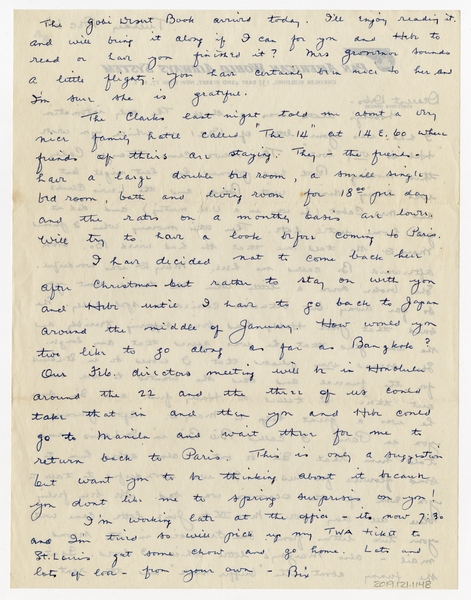 The Gobi Desert Book arrived today. I'll enjoy reading it
and will bring it along if I can for you and Hebe to
read or have you finished it? Mrs Grosvenor sounds
a little flighty. you have certainly been nice to her and
I'm sure she is grateful.
The Clarks last night told me about a very
nice family hotel called "The 14" at 14 E. 60 where
friends of theirs are staying. They - the friends -
have a large double bed room, a small single
bed room, bath and living room for 18.00 per day
and the rates on a monthly basis are lower.
Will try to have a look before coming to Paris.
I have decided not to come back here
after Christmas but rather to stay on with you
and Hebe until I have to go back to Japan
around the middle of January. How would you
two like to go along as far as Bangkok?
Our Feb. directors meeting will be in Honolulu
around the 22 and the three of us could
take that in and then you and Hebe could
go to Manila and wait there for me to
return back to Paris. This is only a suggestion
but want you to be thinking about it because
you dont like me to spring surprises on you!
I'm working late at the office - its now 7:30
and I'm tired so will pick up my TWA ticket to
St. Louis get some chow and go home. Lots and
lots of love - from your own - Bix
2019.121.1148